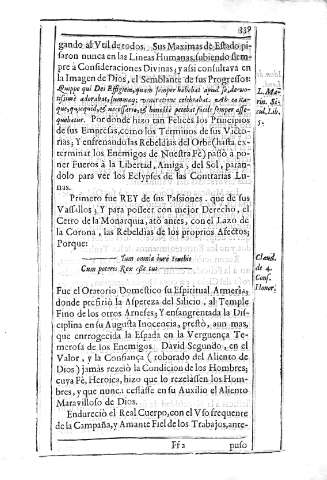 339
gando al Vtil de todos. Sus Maximas de Estado pi-
saron nunca en las Lineas Humanas, subiendo siem-
pre à Consideraciones Divinas; y assi consultava en
la Imagen de Dios, el Semblante de sus Progressos:
Quippe qui Dei Effigiem, quam semper habebat apud se, de vo-
tissimè adorabat, summaq; veneratione celebrabat. Ab eo ita-
que, quicquid, est necessario, & humiliter petebat facilè semper asse-
quebatur. Por donde hizo tan Felices los Principios
de sus Empresas, como los Terminos de sus Victo-
rias; Y enfrenando las Rebeldias del Orbe (hasta ex-
terminar los Enemigos de Nuestra Fè) passò à po-
ner Fueros à la Libertad, Amiga, del Sol, parán-
dolo para ver los Eclypses de las Contrarias Lu-
nas.
L. Ma-
rin. Si-
cul. Lib.
5.
Primero fue REY de sus Passiones, que de sus
Vassallos; Y para posseer con mejor Derecho, el
Cetro de la Monarquia, atò antes, con el Lazo de
la Corona, las Rebeldias de los proprios Afectos;
Porque:
Tum omnia iure tenebis
Cum poteris Rex esse tui
Claud.
de 4.
Cons.
Honor.
Fue el Oratorio Domestico su Espiritual Armeria,
donde prefiriò la Aspereza del Silicio, al Temple
Fino de los otros Arneses; Y ensangrentada la Dis-
ciplina en su Augusta Inocencia, prestò, aun mas,
que enrrogecida la Espada en la Verguença Te-
merosa de los Enemigos. David Segundo, en el
Valor, y la Confiança (roborado del Aliento de
Dios) jamás rezelò la Condicion de los Hombres;
cuya Fè, Heroica, hizo que lo rezelassen los Hom-
bres, y que nunca cessasse en su Auxilio el Aliento
Maravilloso de Dios.
Endureciò el Real Cuerpo, con el Vso frequente
de la Campaña, y Amante Fiel de los Trabajos, ante-
Ff 2 puso